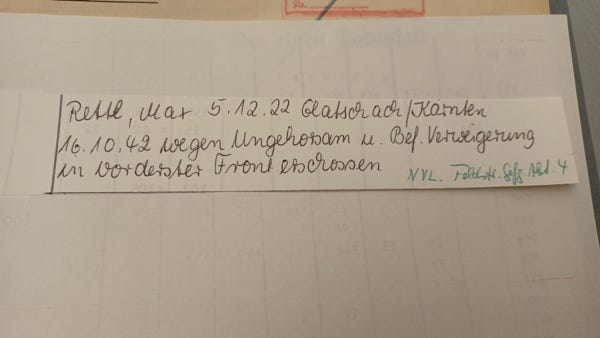 Rettl, Max 5.12.22 Glatschach/Kärnten
16.10.42 wegen Ungehorsam u. Bef. Verweigerung
in vorderster Front erschossen
NVL. Feldstr. Gefg. Abt. 4